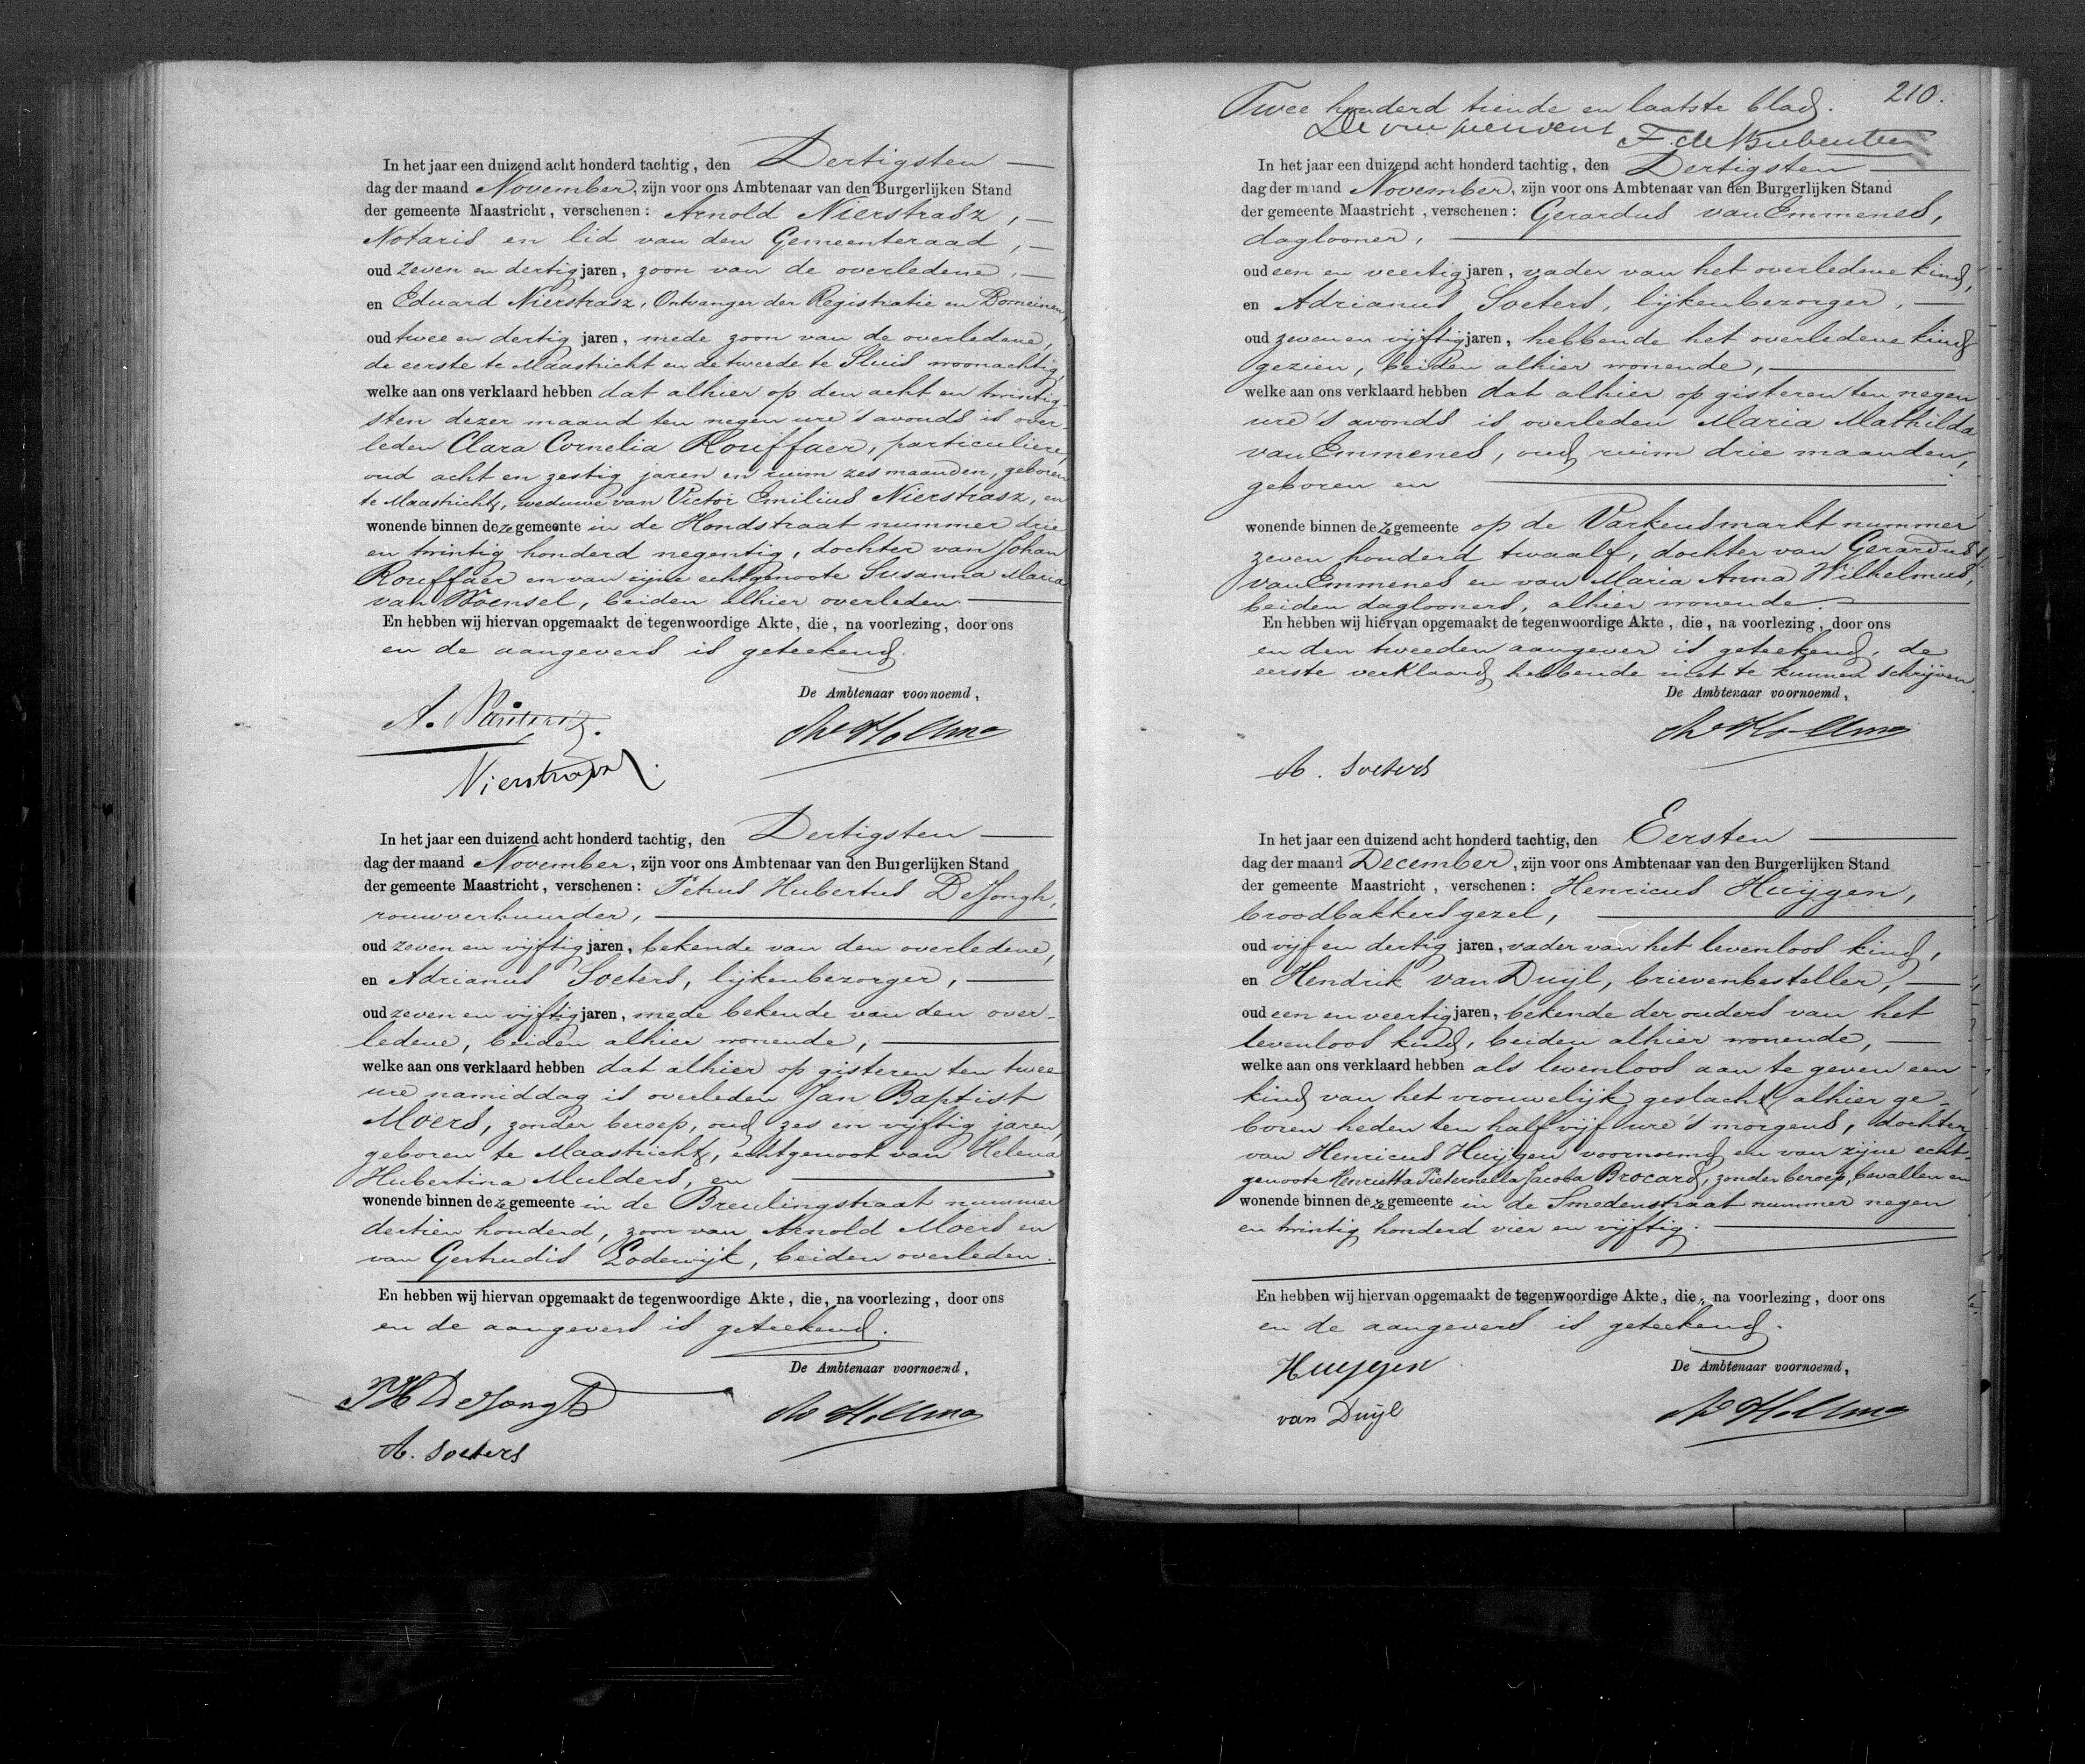 In het jaar een duizend acht honderd tachtig, den Dertigsten
dag der maand November, zijn voor ons Ambtenaar van den Burgerlijken Stand
der gemeente Maastricht, verschenen: Arnold Nierstrasz,
Notaris en lid van den Gemeenteraad,
oud zeven en dertig jaren, zoon van de overledene,
en Eduard Nierstrasz, Ontvanger der Registratie en Domeinen,
oud twee en dertig jaren, mede zoon van de overledene,
de eerste te Maastricht en de tweede te Sluis woonachtig,
welke aan ons verklaard hebben dat alhier op den acht en twintig-
sten dezer maand ten negen ure 's avonds is over-
leden Clara Cornelia Rouffaer, particuliere,
oud acht en zestig jaren en ruim zes maanden, geboren
te Maastricht, weduwe van Victor Emilius Nierstrasz, en
wonende binnen deze gemeente in de Hondstraat nummer drie
en twintig honderd negentig, dochter van Johan
Rouffaer en van zijne echtgenoote Susanna Maria
van Woensel, beiden alhier overleden.
En hebben wij hiervan opgemaakt de tegenwoordige Akte, die, na voorlezing, door ons
en de aangevers is geteekend.
De Ambtenaar voornoemd,
A. Nierstrasz.
Nierstrasz.
In het jaar een duizend acht honderd tachtig, den Dertigsten
dag der maand November, zijn voor ons Ambtenaar van den Burgerlijken Stand
der gemeente Maastricht, verschenen: Petrus Hubertus DeJongh,
rouwverhuurder,
oud zeven en vijftig jaren, bekende van den overledene,
en Adrianus Soeters, lijkenbezorger,
oud zeven en vijftig jaren, mede bekende van den over-
ledene, beiden alhier wonende,
welke aan ons verklaard hebben dat alhier op gisteren ten twee
ure namiddag is overleden Jan Baptist
Moers, zonder beroep, oud zes en vijftig jaren,
geboren te Maastricht, echtgenoot van Helena
Hubertina Mulders, en
wonende binnen deze gemeente in de Breulingstraat nummer
dertien honderd, zoon van Arnold Moers en
van Gertrudis Lodewijk, beiden overleden.
En hebben wij hiervan opgemaakt de tegenwoordige Akte, die, na voorlezing, door ons
en de aangevers is geteekend.
De Ambtenaar voornoemd,
PH DeJongh
A. Soeters
210.
Twee honderd tiende en laatste blad.
In het jaar een duizend acht honderd tachtig, den Dertigsten
dag der maand November, zijn voor ons Ambtenaar van den Burgerlijken Stand
der gemeente Maastricht, verschenen: Gerardus van Emmenes,
daglooner,
oud een en veertig jaren, vader van het overledene kind,
en Adrianus Soeters, lijkenbezorger,
oud zeven en vijftig jaren, hebbende het overledene kind
gezien, beiden alhier wonende,
welke aan ons verklaard hebben dat alhier op gisteren ten negen
ure 's avonds is overleden Maria Mathilda
van Emmenes, oud ruim drie maanden,
geboren en
wonende binnen deze gemeente op de Varkensmarkt nummer
zeven honderd twaalf, dochter van Gerardus
van Emmenes en van Maria Anna Wilhelmus,
beiden daglooners, alhier wonende.
En hebben wij hiervan opgemaakt de tegenwoordige Akte, die, na voorlezing, door ons
en den tweeden aangever is geteekend, de
eerste verklaard hebbende niet te kunnen schrijven.
De Ambtenaar voornoemd,
A. Soeters
In het jaar een duizend acht honderd tachtig, den Eersten
dag der maand December, zijn voor ons Ambtenaar van den Burgerlijken Stand
der gemeente Maastricht, verschenen: Henricus Huijgen,
broodbakkersgezel,
oud vijf en dertig jaren, vader van het levenloos kind,
en Hendrik van Duijl, brievenbesteller,
oud een en veertig jaren, bekende der ouders van het
levenloos kind, beiden alhier wonende,
welke aan ons verklaard hebben als levenloos aan te geven een
kind van het vrouwelijk geslacht alhier ge-
boren heden ten half vijf ure 's morgens, dochter
van Henricus Huijgen voornoemd en van zijne echt-
genoote Henrietta Pieternella Jacoba Brocard, zonder beroep, bevallen en
wonende binnen deze gemeente in de Smedenstraat nummer negen
en twintig honderd vier en vijftig.
En hebben wij hiervan opgemaakt de tegenwoordige Akte, die, na voorlezing, door ons
en de aangevers is geteekend.
De Ambtenaar voornoemd,
Huijgen
van Duijl